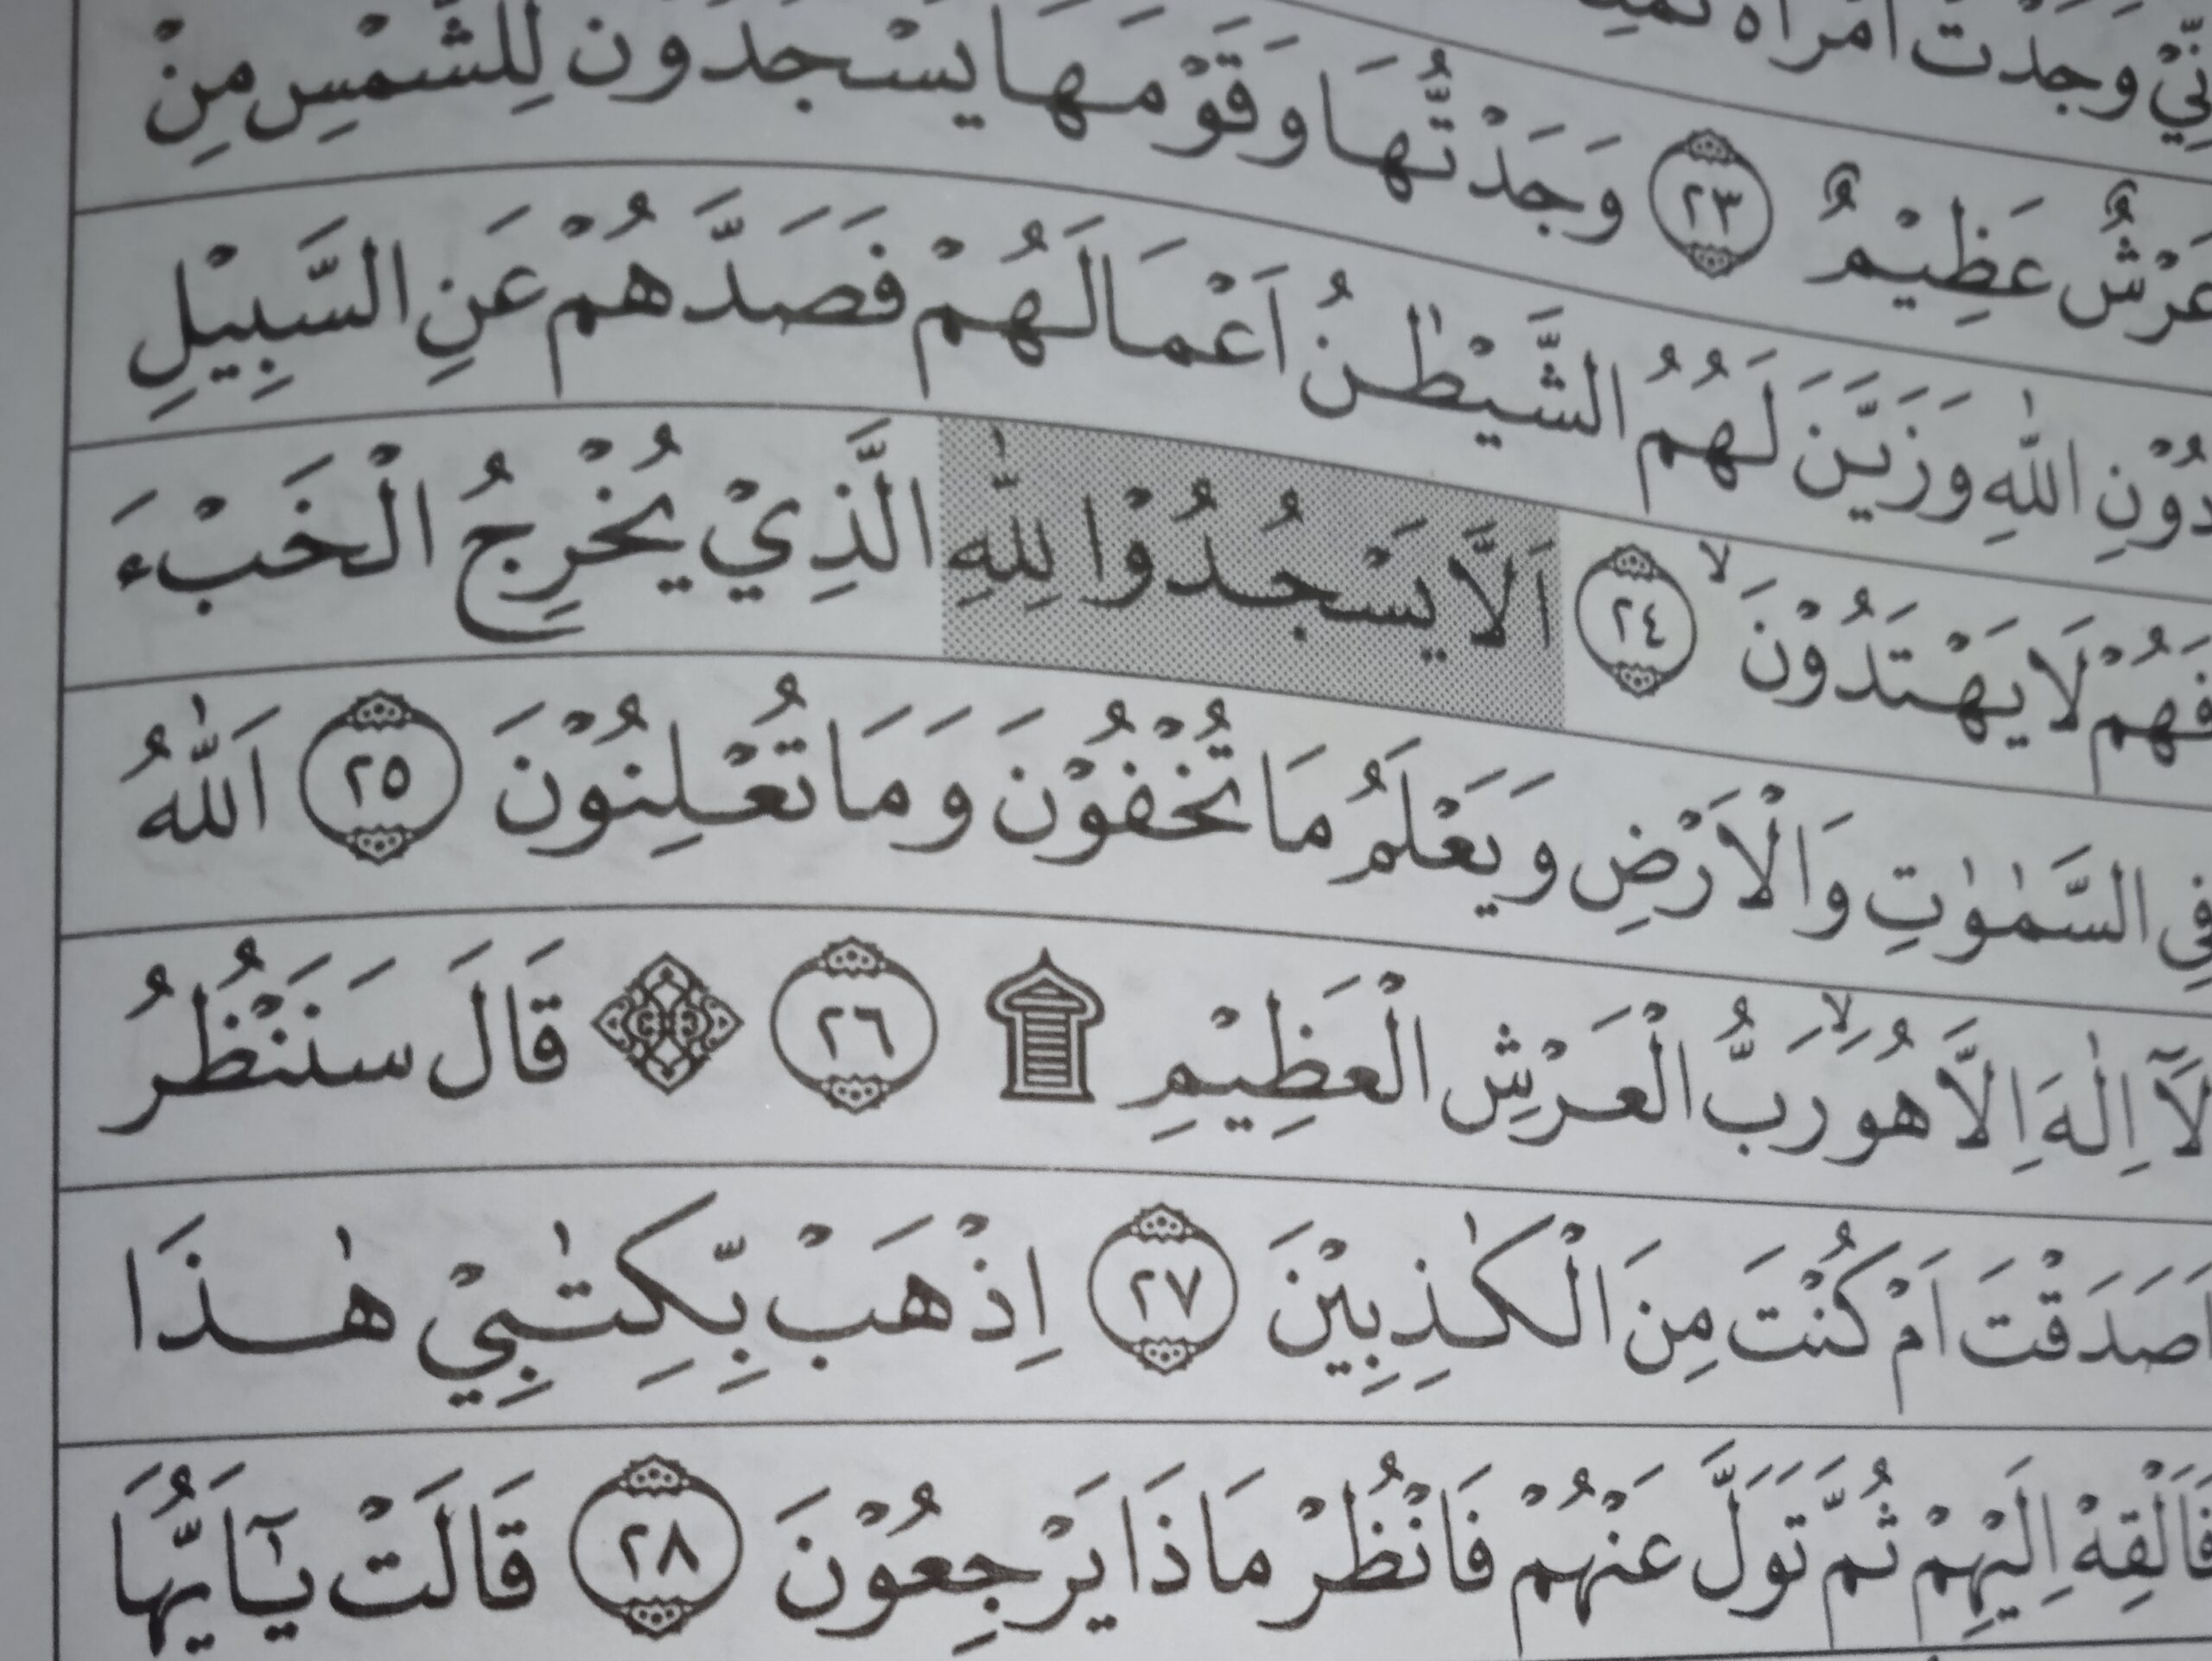 اِنِّيْ وَجَدْتُّ امْرَاَةً
عَرْشٌ عَظِيْمٌ ٢٣ وَجَدْتُّهَا وَقَوْمَهَا يَسْجُدُوْنَ لِلشَّمْسِ مِنْ
دُوْنِ اللّٰهِ وَزَيَّنَ لَهُمُ الشَّيْطٰنُ اَعْمَالَهُمْ فَصَدَّهُمْ عَنِ السَّبِيْلِ
فَهُمْ لَا يَهْتَدُوْنَ ۙ ٢٤ اَلَّا يَسْجُدُوْا لِلّٰهِ الَّذِيْ يُخْرِجُ الْخَبْءَ
فِي السَّمٰوٰتِ وَالْاَرْضِ وَيَعْلَمُ مَا تُخْفُوْنَ وَمَا تُعْلِنُوْنَ ٢٥ اَللّٰهُ
لَآ اِلٰهَ اِلَّا هُوَ رَبُّ الْعَرْشِ الْعَظِيْمِ ۩ ٢٦ قَالَ سَنَنْظُرُ
اَصَدَقْتَ اَمْ كُنْتَ مِنَ الْكٰذِبِيْنَ ٢٧ اِذْهَبْ بِّكِتٰبِيْ هٰذَا
فَاَلْقِهْ اِلَيْهِمْ ثُمَّ تَوَلَّ عَنْهُمْ فَانْظُرْ مَاذَا يَرْجِعُوْنَ ٢٨ قَالَتْ يٰٓاَيُّهَا